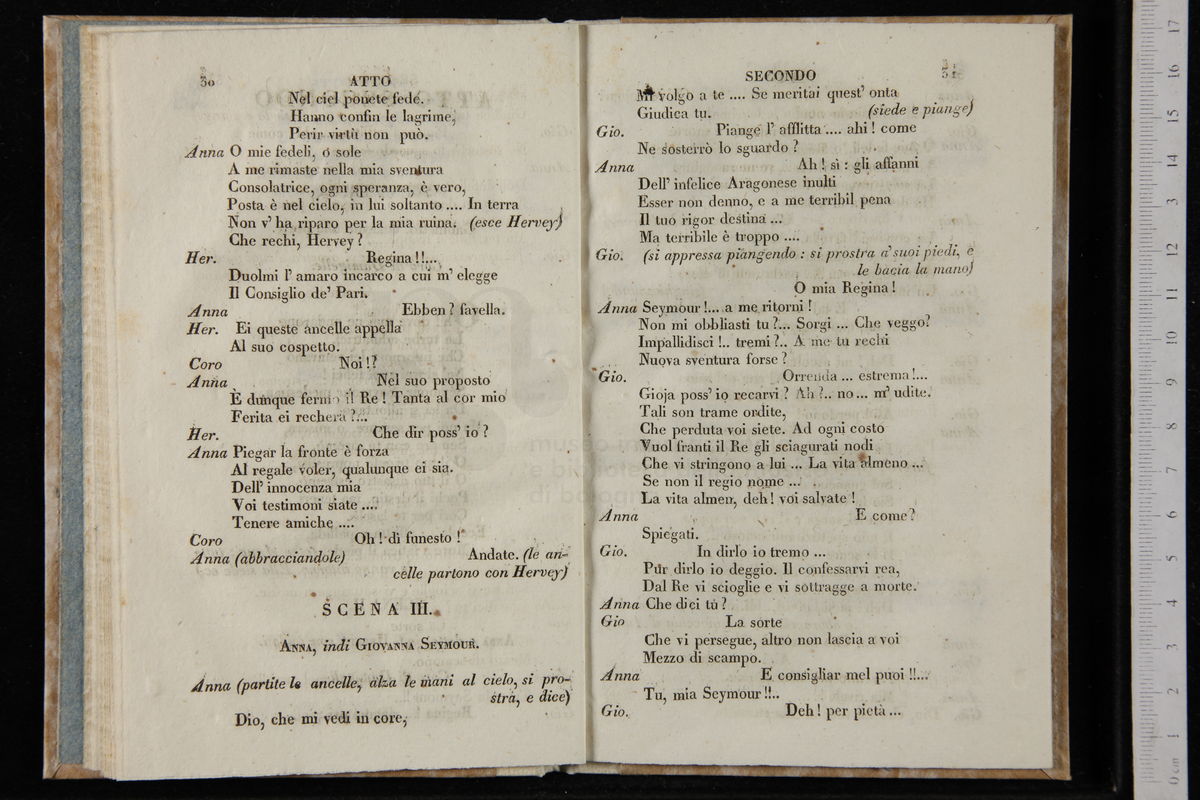 30
ATTO
Nel ciel ponete fede.
Hanno confin le lagrime,
Perir virtù non può.
Anna O mie fedeli, o sole
A me rimaste nella mia sventura
Consolatrice, ogni speranza, è vero,
Posta è nel cielo, in lui soltanto .... In terra
Non v' ha riparo per la mia ruina. (esce Hervey)
Che rechi, Hervey?
Her. Regina!!...
Duolmi l' amaro incarco a cui m' elegge
Il Consiglio de' Pari.
Anna Ebben? favella.
Her. Ei queste ancelle appella
Al suo cospetto.
Coro Noi!?
Anna Nel suo proposto
È dunque fermo il Re! Tanta al cor mio
Ferita ei recherà?...
Her. Che dir poss' io?
Anna Piegar la fronte è forza
Al regale voler, qualunque ei sia.
Dell' innocenza mia
Voi testimoni siate ....
Tenere amiche ....
Coro Oh! dì funesto!
Anna (abbracciandole) Andate. (le an-
celle partono con Hervey)
SCENA III.
ANNA, indi GIOVANNA SEYMOUR.
Anna (partite le ancelle, alza le mani al cielo, si pro-
stra, e dice)
Dio, che mi vedi in core,
SECONDO
31
Mi volgo a te .... Se meritai quest' onta
Giudica tu. (siede e piange)
Gio. Piange l' afflitta .... ahi! come
Ne sosterrò lo sguardo?
Anna Ah! sì: gli affanni
Dell' infelice Aragonese inulti
Esser non denno, e a me terribil pena
Il tuo rigor destina ...
Ma terribile è troppo ....
Gio. (si appressa piangendo: si prostra a' suoi piedi, e
le bacia la mano)
O mia Regina!
Anna Seymour!... a me ritorni!
Non mi obbliasti tu?... Sorgi ... Che veggo?
Impallidisci!.. tremi?.. A me tu rechi
Nuova sventura forse?
Gio. Orrenda ... estrema!...
Gioja poss' io recarvi? Ah?.. no... m' udite.
Tali son trame ordite,
Che perduta voi siete. Ad ogni costo
Vuol franti il Re gli sciagurati nodi
Che vi stringono a lui ... La vita almeno ...
Se non il regio nome ...
La vita almen, deh! voi salvate!
Anna E come?
Spiegati.
Gio. In dirlo io tremo ...
Pur dirlo io deggio. Il confessarvi rea,
Dal Re vi scioglie e vi sottragge a morte.
Anna Che dici tu?
Gio La sorte
Che vi persegue, altro non lascia a voi
Mezzo di scampo.
Anna E consigliar mel puoi!!...
Tu, mia Seymour!!..
Gio. Deh! per pietà ...